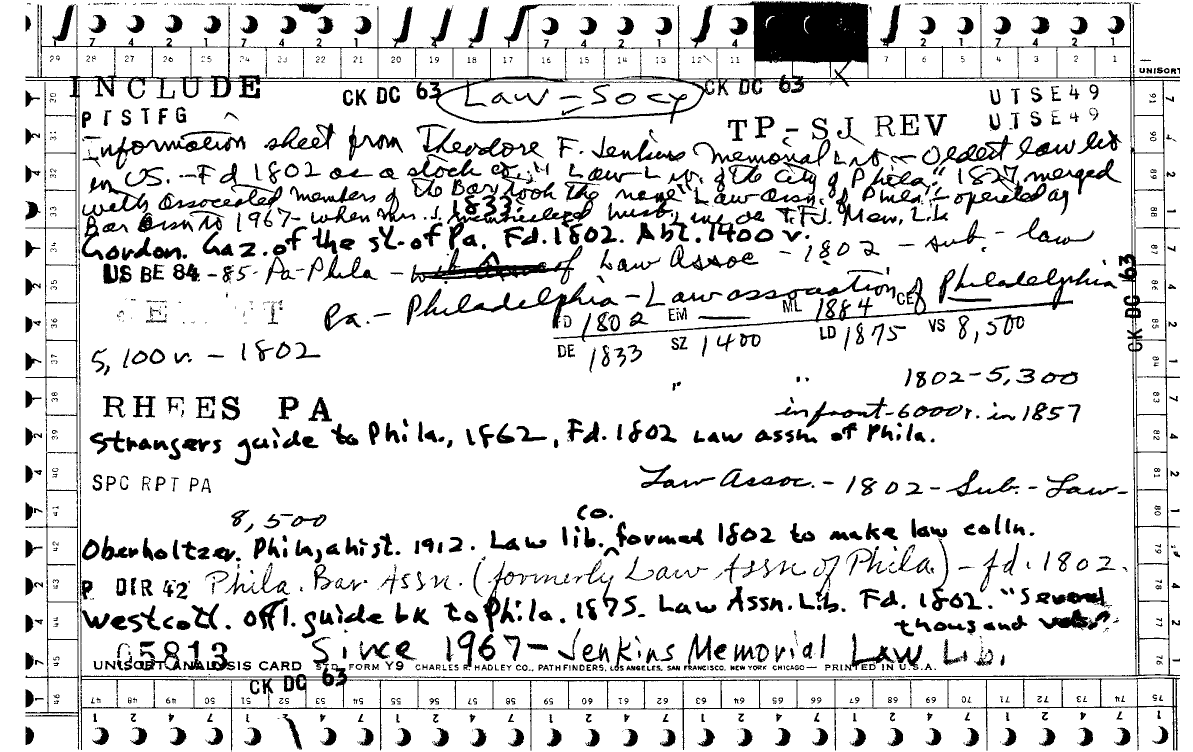 INCLUDE CK DC 63 Law-Socy CK DC 63 UTSE49
PTSTFG TP-SJ REV UTSE49
Information sheet from Theodore F. Jenkins Memorial Lib - Oldest law lib
in US. - Fd 1802 as a stock co., "Law Lib. of the City of Phila." 1827 merged
with Associated members of the Bar took the name "Law Assn. of Phila." - operated as
Bar Assn to 1967 - when Mrs. J. husb, T.F.J. Mem. Lib
1833
Gordon. Gaz. of the st. of Pa. Fd. 1802. Abt. 1400 v.
US BE 84-85- Pa-Phila - of Law Assoc - 1802 - sub. - law
Pa. - Philadelphia - Law association of Philadelphia
FD 1802 EM — ML 1884 CE
5,100 v. - 1802 DE 1833 SZ 1400 LD 1875 VS 8,500
" " 1802-5,300
RHEES PA in front-6000v. in 1857
Strangers guide to Phila., 1862, Fd. 1802 Law assn. of Phila.
SPC RPT PA Law Assoc. - 1802 - Sub. - Law -
8,500 co.
Oberholtzer. Phila; a hist. 1912. Law lib. ^ formed 1802 to make law colln.
P DIR 42 Phila. Bar Assn. (formerly Law Assn of Phila.) - fd. 1802.
Westcott. Offl. guide bk to Phila. 1875. Law Assn. Lib. Fd. 1802. "Several
thousand vols."
05813 Since 1967 - Jenkins Memorial Law Lib.
UNISORT ANALYSIS CARD STD. FORM Y9 CHARLES R. HADLEY CO., PATHFINDERS, LOS ANGELES, SAN FRANCISCO, NEW YORK CHICAGO — PRINTED IN U.S.A.
CK DC 63
CK DC 63
UNISORT